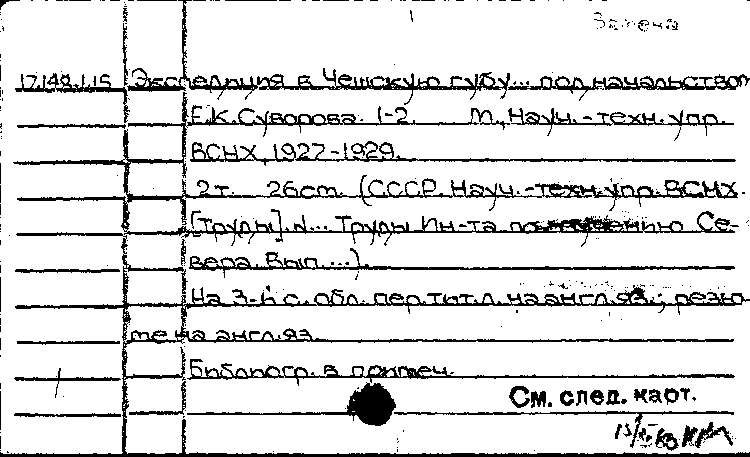 Замена
17.148.1.15 Экспедиция в Чешскую губу... под начальством
Е.К.Суворова. 1-2. М., Науч.-техн. упр.
ВСНХ, 1927-1929.
2т. 26см. (СССР. Науч.-техн. упр. ВСНХ.
[Труды]. №... Труды Ин-та по изучению Се-
вера. Вып. ...).
На 3-й с. обл. пер. тит. л. на англ. яз.; резю-
ме на англ. яз.
Библиогр. в примеч.
См. след. карт.